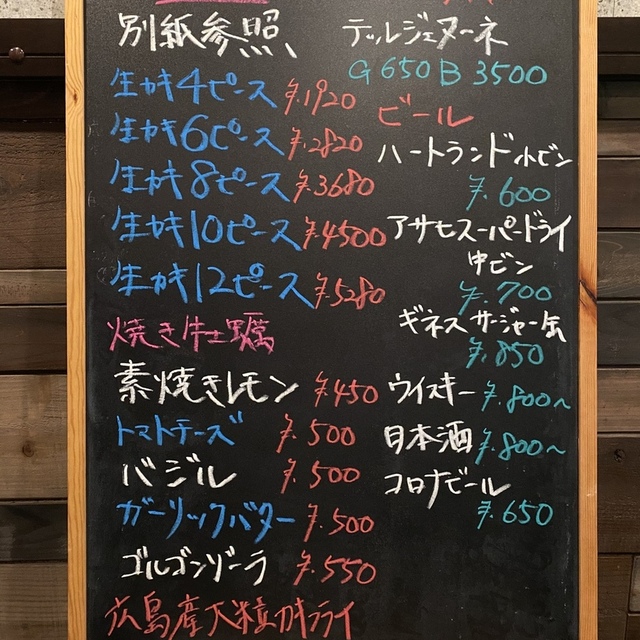 別紙参照
生カキ4ピース ¥.1920
生カキ6ピース ¥.2820
生カキ8ピース ¥3680
生カキ10ピース ¥4500
生カキ12ピース ¥.5280
焼き牡蠣
素焼きレモン ¥450
トマトチーズ ¥.500
バジル ¥.500
ガーリックバター ¥.500
ゴルゴンゾーラ ¥.550
広島産大粒カキフライ
テッルジェヌーネ
G 650 B 3500
ビール
ハートランド小ビン
¥.600
アサヒスーパードライ
中ビン
¥.700
ギネス サージャー缶
¥.850
ウイスキー ¥.800~
日本酒 ¥.800~
コロナビール
¥.650